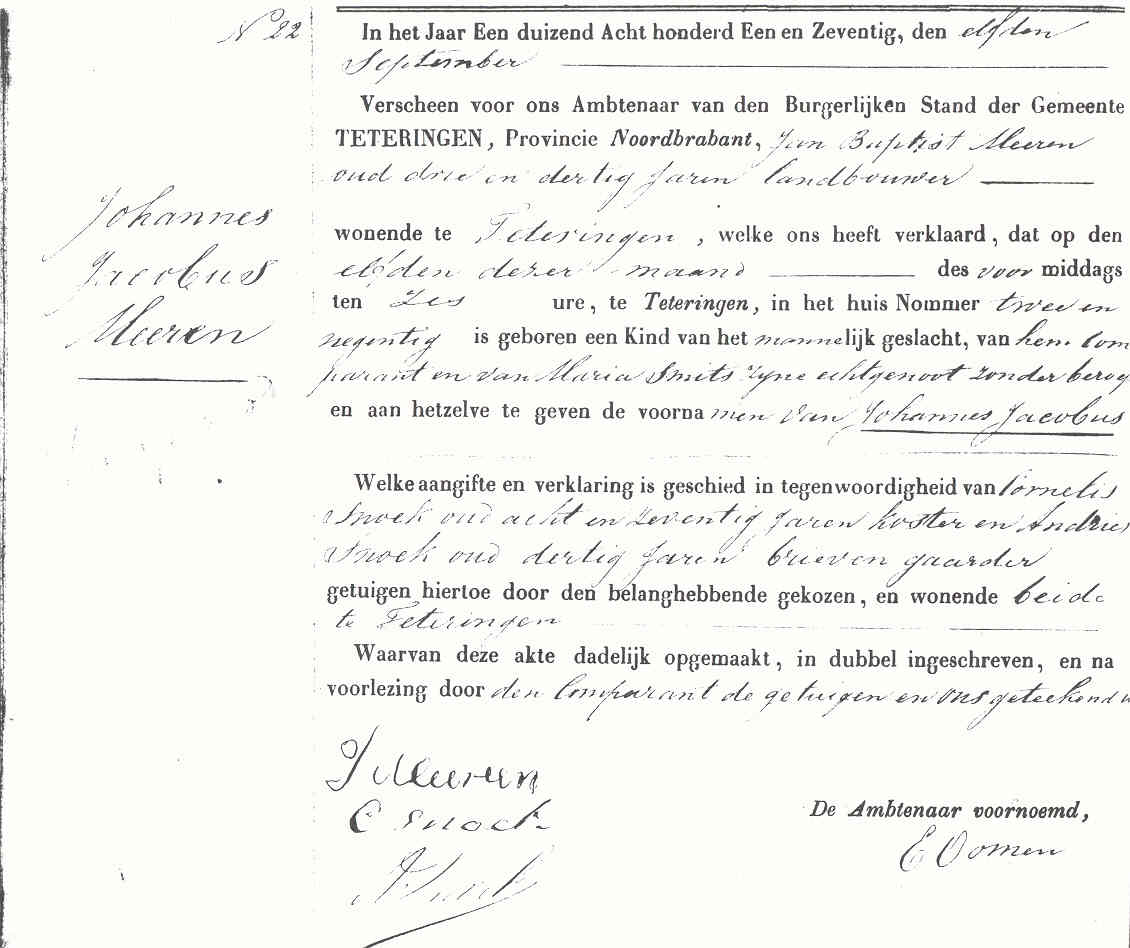 N 22
Johannes
Jacobus
Meeren
In het Jaar Een duizend Acht honderd Een en Zeventig, den elfden
September
Verscheen voor ons Ambtenaar van den Burgerlijken Stand der Gemeente
TETERINGEN, Provincie Noordbrabant, Jan Baptist Meeren
oud drie en dertig jaren landbouwer
wonende te Teteringen, welke ons heeft verklaard, dat op den
elfden dezer maand des voor middags
ten Zes ure, te Teteringen, in het huis Nommer twee en
negentig is geboren een Kind van het mannelijk geslacht, van hem Com
parant en van Maria Smits zyne echtgenoot zonder beroep
en aan hetzelve te geven de voornamen van Johannes Jacobus
Welke aangifte en verklaring is geschied in tegenwoordigheid van Cornelis
Snoek oud acht en zeventig jaren koster en Andries
Snoek oud dertig jaren brieven gaarder
getuigen hiertoe door den belanghebbende gekozen, en wonende beide
te Teteringen
Waarvan deze akte dadelijk opgemaakt, in dubbel ingeschreven, en na
voorlezing door den Comparant de getuigen en ons geteekend
J Meeren
C Snoek
A Snoek
De Ambtenaar voornoemd,
E Oomen